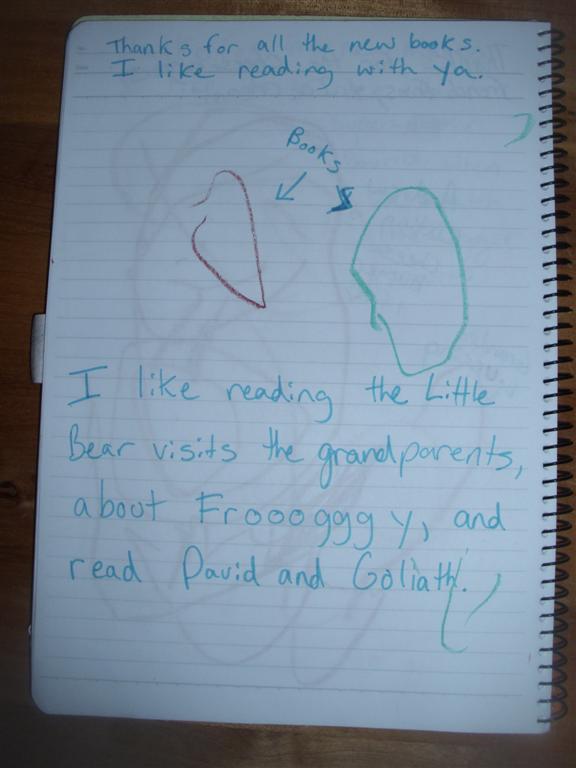 Thanks for all the new books.
I like reading with ya.
Books
I like reading the Little
Bear visits the grandparents,
about Froooggg y, and
read David and Goliath!